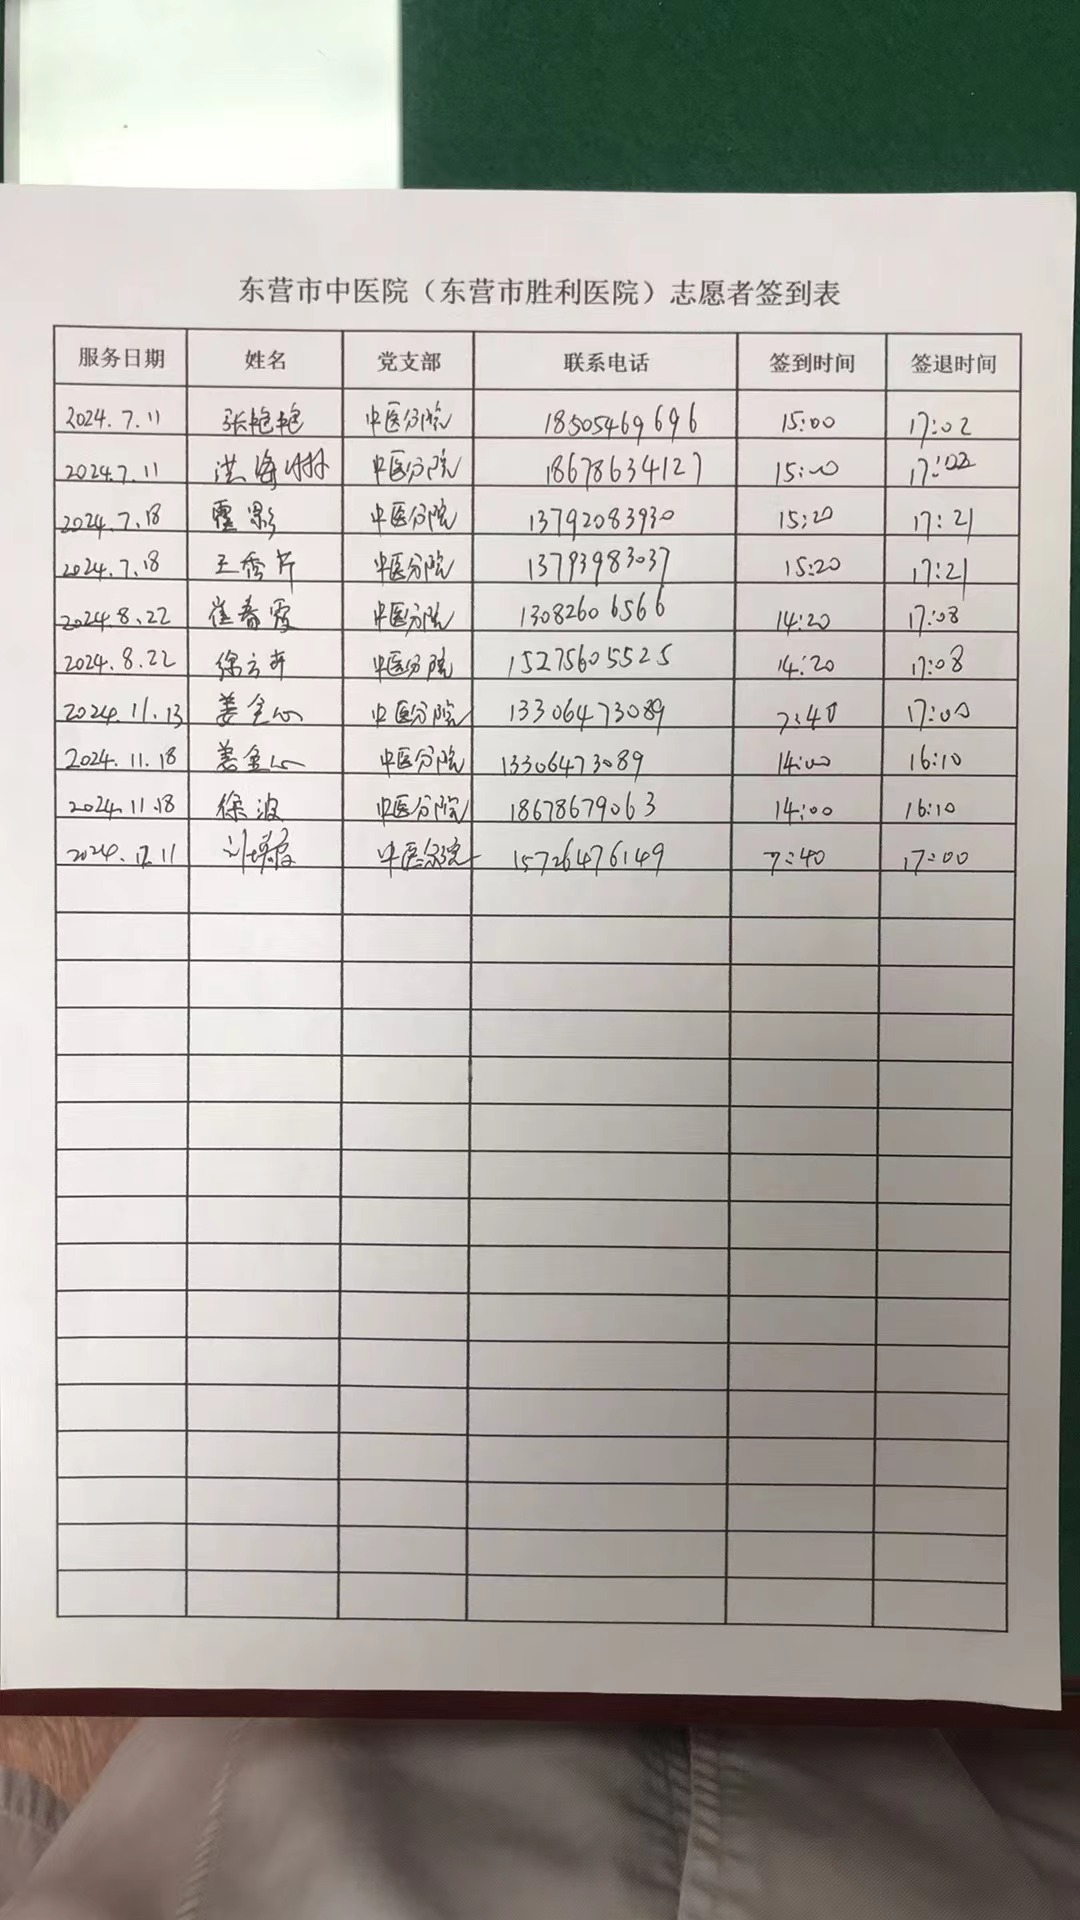 东营市中医院（东营市胜利医院）志愿者签到表
服务日期 姓名 党支部 联系电话 签到时间 签退时间
2024.7.11 张艳艳 中医分院 18505469696 15:00 17:02
2024.7.11 洪海树 中医分院 18678634127 15:00 17:02
2024.7.18 霍影 中医分院 13792083930 15:20 17:21
2024.7.18 王秀芹 中医分院 13793983037 15:20 17:21
2024.8.22 崔春霞 中医分院 13082606566 14:20 17:08
2024.8.22 徐云 中医分院 15275605525 14:20 17:08
2024.11.13 姜金心 中医分院 13306473089 7:40 17:00
2024.11.18 姜金心 中医分院 13306473089 14:00 16:10
2024.11.18 徐波 中医分院 18678679063 14:00 16:10
2024.12.11 刘 中医分院 15726476149 7:40 17:00